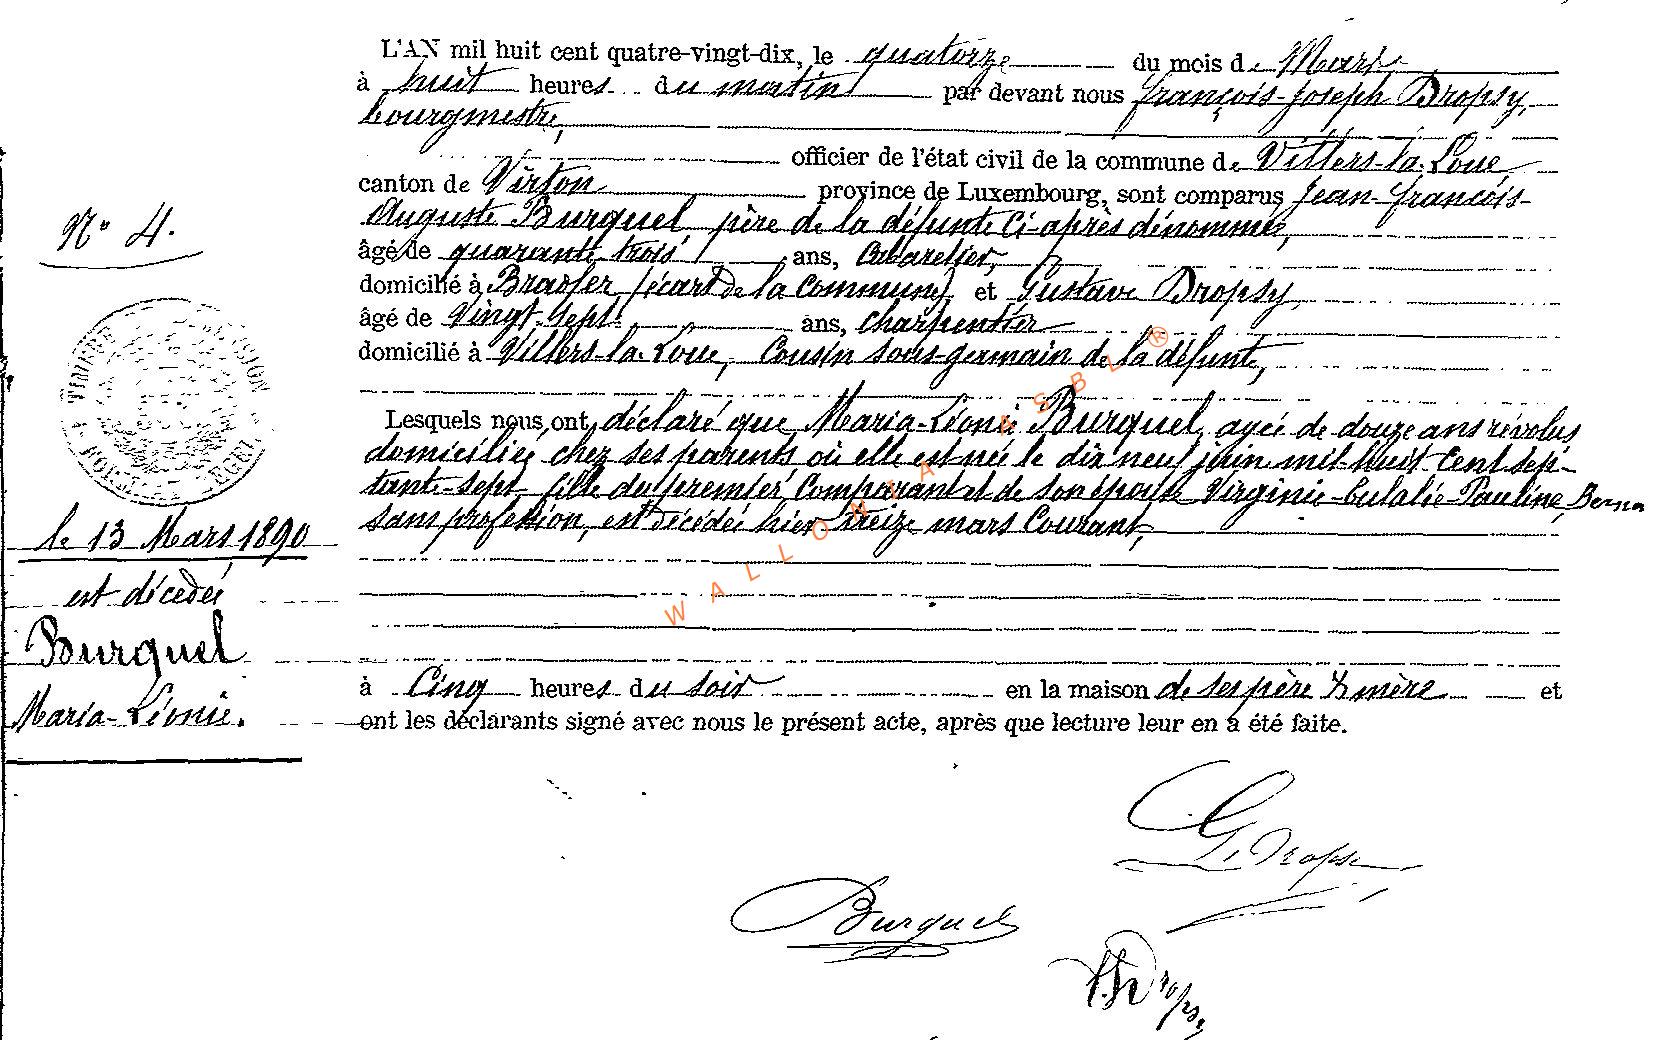 L'AN mil huit cent quatre-vingt-dix, le quatorze du mois de Mars,
à huit heures du matin par devant nous François-Joseph Dropsy,
bourgmestre,
officier de l'état civil de la commune de Villers-la-Loue,
canton de Virton province de Luxembourg, sont comparus Jean-François-
Auguste Burquel, père de la défunte ci-après dénommée,
âgé de quarante-trois ans, Cabaretier,
domicilié à (écart de la Commune), et Gustave Dropsy,
âgé de vingt-sept ans, charpentier
domicilié à Villers-la-Loue, Cousin sous-germain de la défunte,
Lesquels nous ont déclaré que Maria-Léonie Burquel, agée de douze ans révolus
domiciliée chez ses parents, où elle est née le dix neuf juin mil-huit-cent sep-
tante-sept, fille du premier Comparant et de son épouse Virginie-Eulalie-Pauline,
sans profession, est décédée hier treize mars Courant,
à Cinq heures du soir en la maison de ses père & mère et
ont les déclarants signé avec nous le présent acte, après que lecture leur en a été faite.
N° 4.
le 13 Mars 1890
est décédée
Burquel
Maria-Léonie.
G. Dropsy
Burquel
Dropsy
WALLONIA ASBL ®